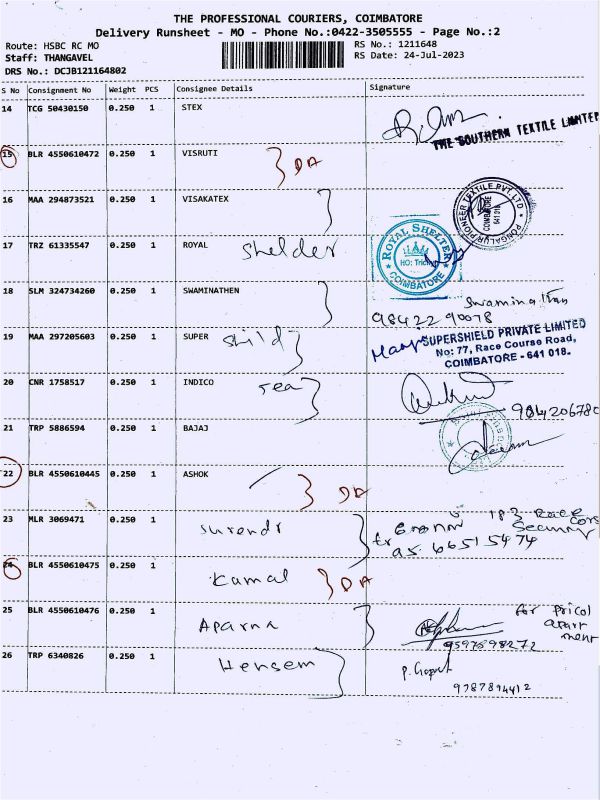 THE PROFESSIONAL COURIERS, COIMBATORE
Delivery Runsheet - MO - Phone No.:0422-3505555 - Page No.:2
Route: HSBC RC MO
RS No.: 1211648
Staff: THANGAVEL
RS Date: 24-Jul-2023
DRS No.: DCJB121164802
S No Consignment No Weight PCS Consignee Details Signature
14 TCG 50430150 0.250 1 STEX
THE SOUTHERN TEXTILE LIMITED
15 BLR 4550610472 0.250 1 VISRUTI DA
16 MAA 294873521 0.250 1 VISAKATEX
PONGALUR PIONEER TEXTILE PVT. LTD
COIMBATORE
641 018
17 TRZ 61335547 0.250 1 ROYAL Shelder
ROYAL SHELTER
HO: Trichy
COIMBATORE
18 SLM 324734260 0.250 1 SWAMINATHEN
Swaminathan
98422 90078
19 MAA 297205603 0.250 1 SUPER Shild
SUPERSHIELD PRIVATE LIMITED
No: 77, Race Course Road,
COIMBATORE - 641 018.
20 CNR 1758517 0.250 1 INDICO Tea
21 TRP 5886594 0.250 1 BAJAJ
22 BLR 4550610445 0.250 1 ASHOK DA
23 MLR 3069471 0.250 1 Surendr
183 Race Cors
Security
24 BLR 4550610475 0.250 1 Kamal DA
25 BLR 4550610476 0.250 1 Aparna
for Pricol
apart
ment
9597698272
26 TRP 6340826 0.250 1 Hensem
P. Gopal
9787894412